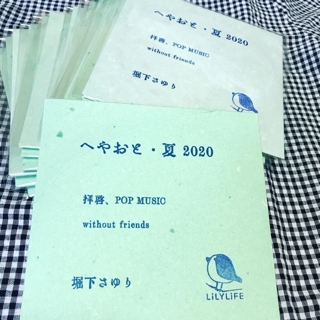 へやおと・夏 2020
拝啓、POP MUSIC
without friends
堀下さゆり
へやおと・夏 2020
拝啓、POP MUSIC
without friends
堀下さゆり
LiLYLiFE